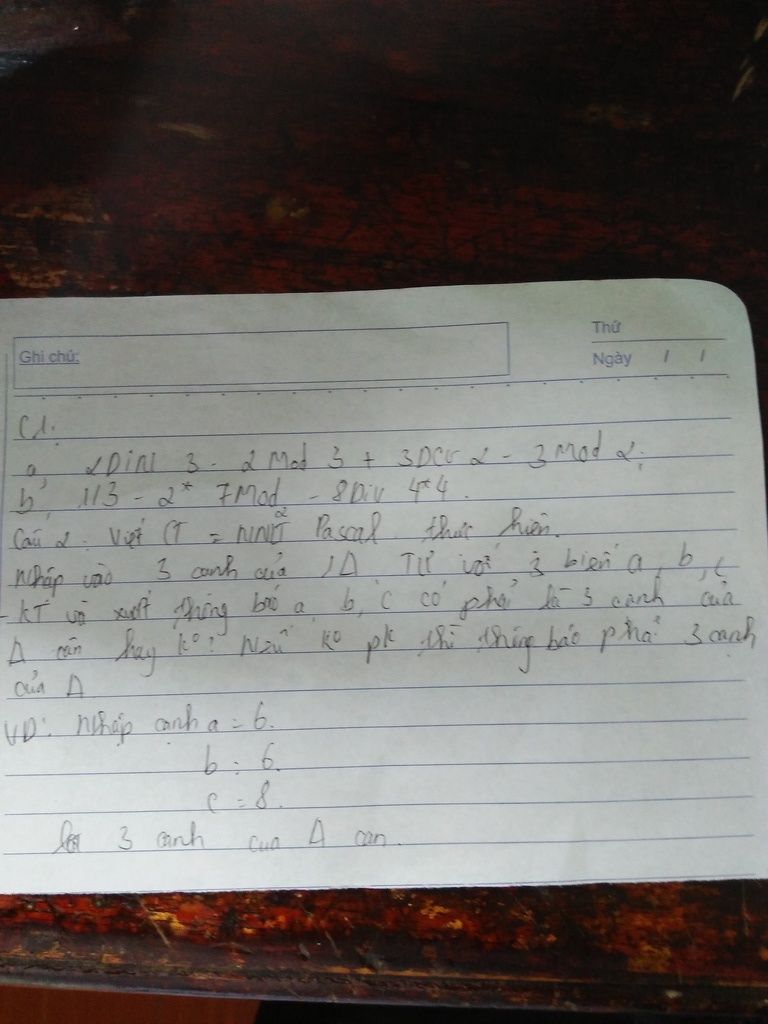 Ghi chú:
Thứ
Ngày / /
C1:
a, 2 Div 3 - 2 Mod 3 + 3 Div 2 - 3 Mod 2;
b, 113 - 2* 7 Mod 2 - 8 Div 4*4.
Câu 2: Viết CT = NNLT Pascal thực hiện.
Nhập vào 3 cạnh của 1 Δ với 3 biến a, b, c
- KT và xuất thông báo a, b, c có phải là 3 cạnh của
Δ cân hay ko? Nếu ko pk thì thông báo phải 3 cạnh
của Δ
VD: Nhập cạnh a = 6.
b = 6.
c = 8.
là 3 canh cua Δ can.